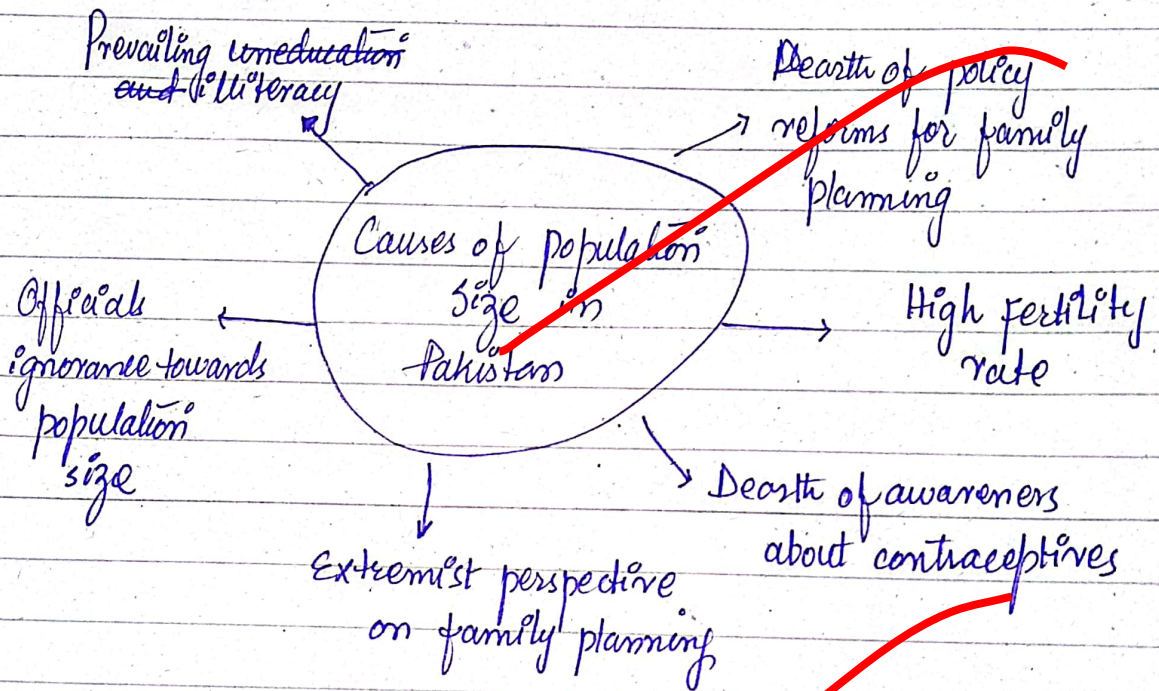 Prevailing uneducation
and illiteracy
Dearth of policy
reforms for family
planning
Causes of population
size in
Pakistan
Officials
ignorance towards
population
size
High Fertility
rate
Dearth of awareners
about contraceptives
Extremist perspective
on family planning